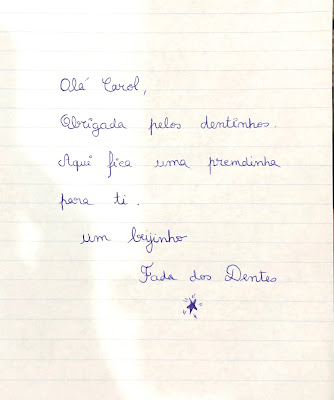 Olá Carol,
Obrigada pelos dentinhos.
Aqui fica uma premdinha
para ti.
um beijinho
Fada dos Dentes